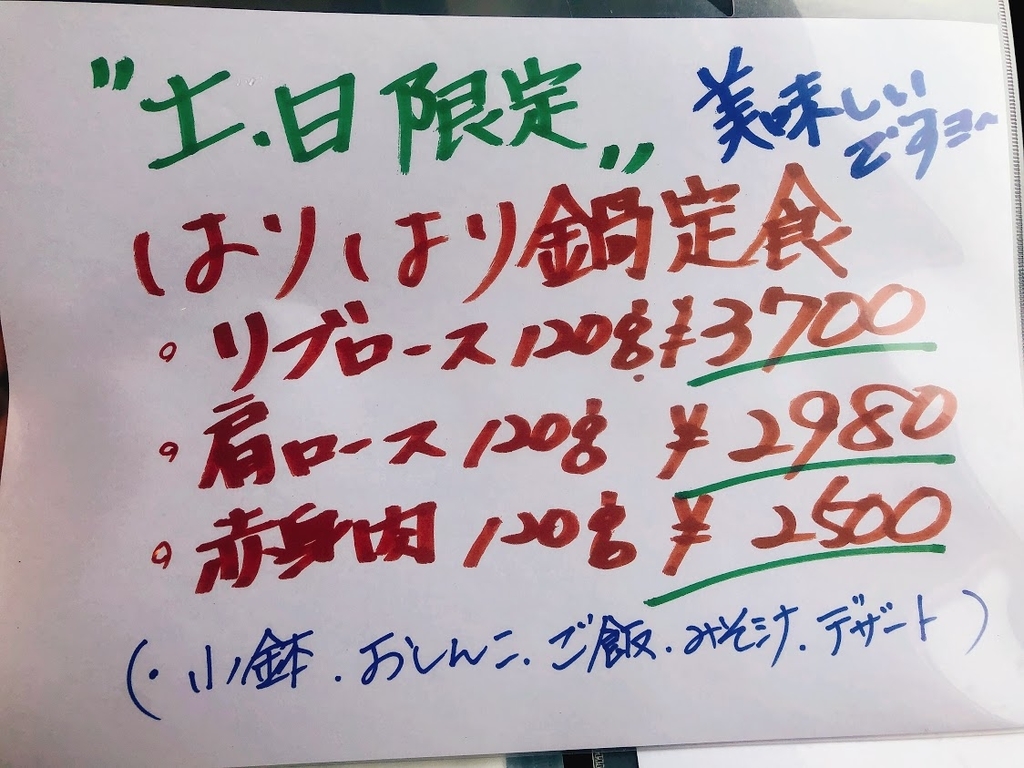 "土.日限定"
美味しい
ですヨ~
はりはり鍋定食
。リブロース 120g ¥3700
。肩ロース 120g ¥2980
。赤身肉 120g ¥2500
(・小鉢.おしんこ.ご飯.みそ汁.デザート)